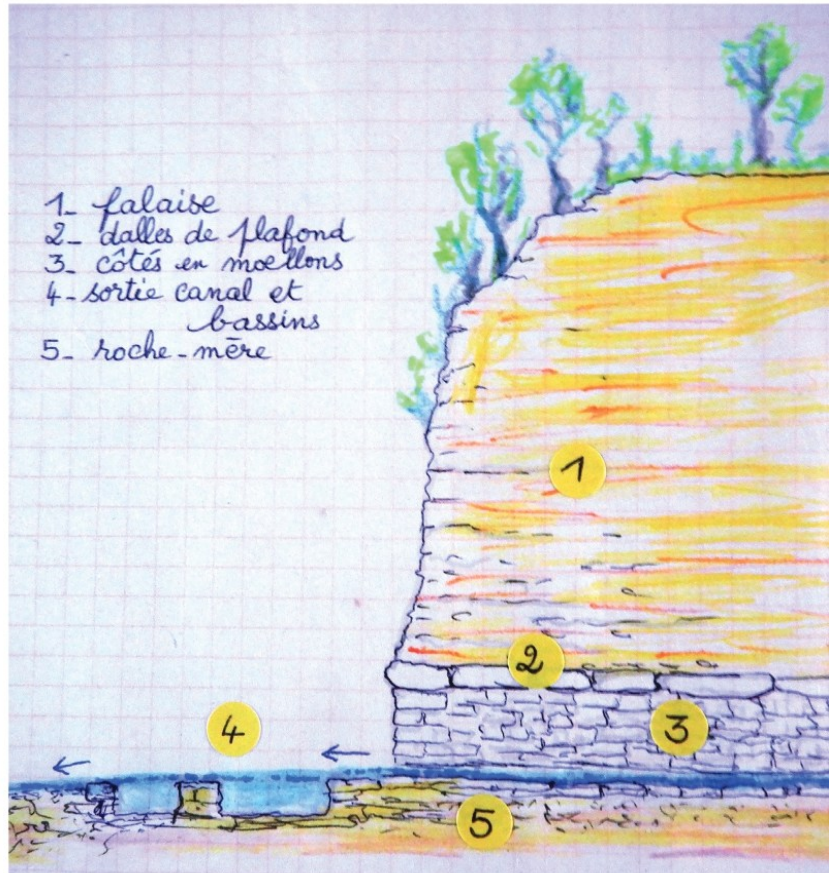 1_ falaise
2_ dalles de plafond
3_ côtés en moellons
4_ sortie canal et
bassins
5_ roche-mère
1
2
4
3
5